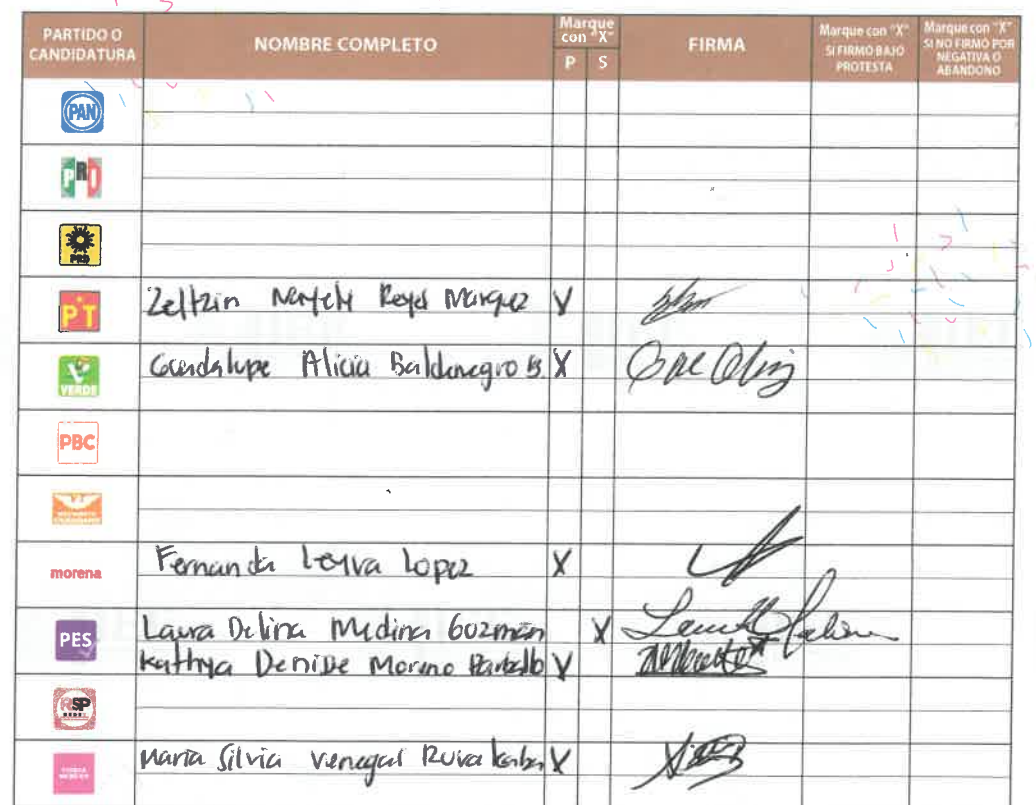 PARTIDO O CANDIDATURA NOMBRE COMPLETO Marque con "X" P S FIRMA Marque con "X" SI FIRMO BAJO PROTESTA Marque con "X" SI NO FIRMO POR NEGATIVA O ABANDONO
PAN
PRI
PRD
PT Zeltzin Reyes Marquez X
VERDE Guadalupe Alicia Baldenegro B. X
PBC
morena Fernanda Leyva Lopez X
PES Laura Delina Medina Guzmán X
Kathya Denisse Moreno X
RSP
Maria Silvia Venegas X